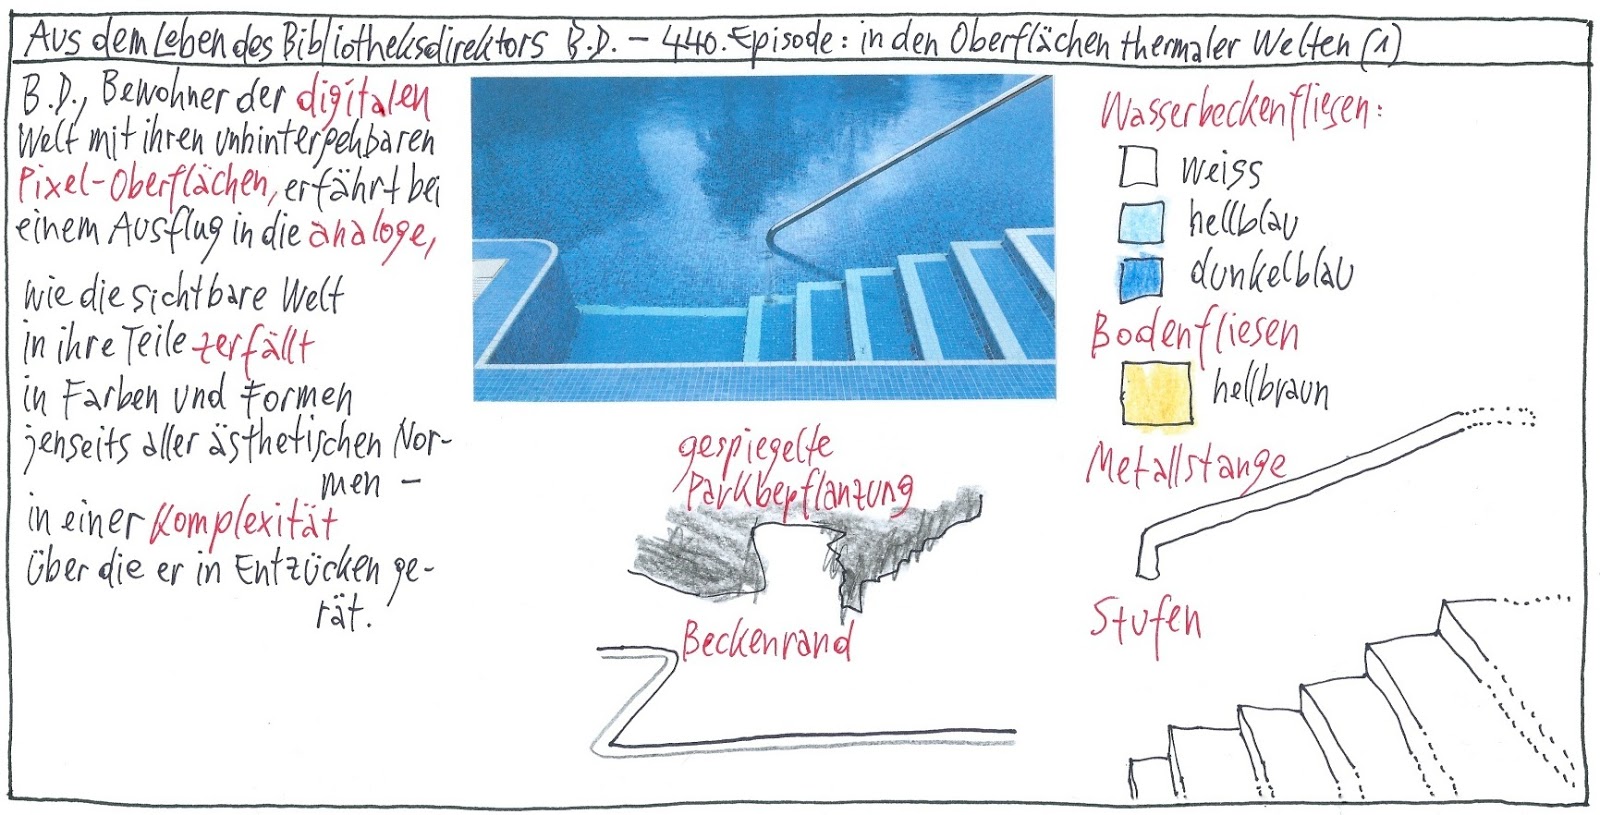 Aus dem Leben des Bibliotheksdirektors B.D. – 440. Episode: in den Oberflächen thermaler Welten (1)
B.D., Bewohner der digitalen
Welt mit ihren unhintergehbaren
Pixel-Oberflächen, erfährt bei
einem Ausflug in die analoge,
wie die sichtbare Welt
in ihre Teile zerfällt
in Farben und Formen
jenseits aller ästhetischen Nor-
men –
in einer Komplexität
über die er in Entzücken ge-
rät.
gespiegelte
Parkbepflanzung
Beckenrand
Wasserbeckenfliesen:
weiss
hellblau
dunkelblau
Bodenfliesen
hellbraun
Metallstange
Stufen